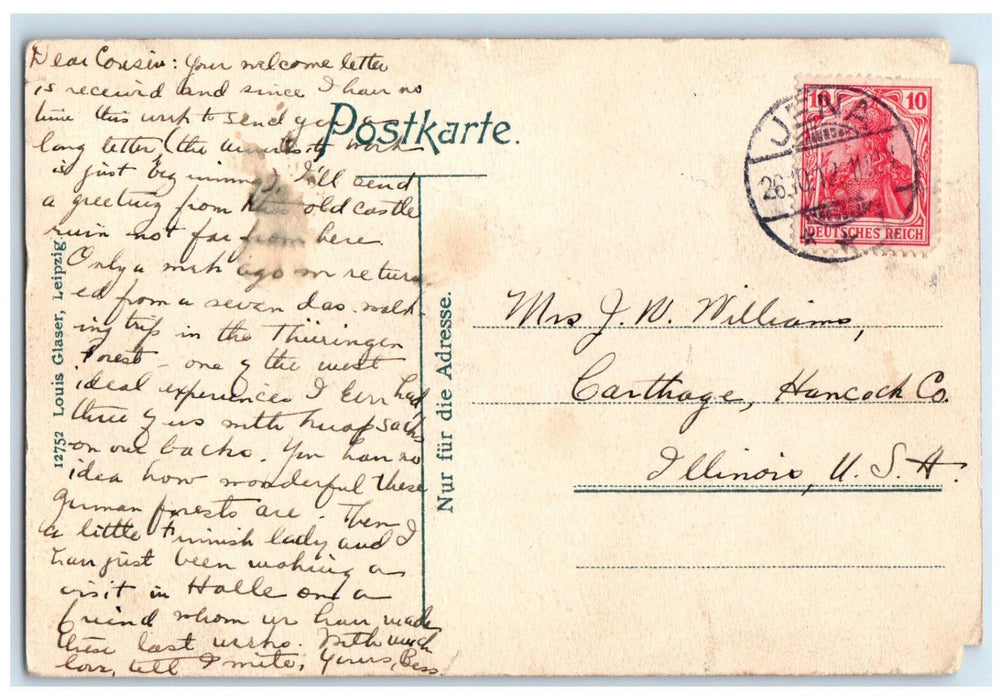 Dear Cousin: Your welcome letter
is receiv'd and since I hav no
time this week to send you a
long letter (the University work
is just beginning), I'll send
a greeting from this old castle
ruin not far from here.
Only a week ago we return
ed from a seven das. walk-
ing trip in the Thüringen
Forest – one of the most
ideal experiences I ever had
three of us with knapsacks
on our backs. You hav no
idea how wonderful these
german forests are. Then
a little Finnish lady and I
hav just been making a
visit in Halle on a
friend whom we hav made
these last weeks. With much
love, till I write, Yours, Bess.
Postkarte.
Nur für die Adresse.
12752 Louis Glaser, Leipzig.
JENA
26.10.12
10 10
DEUTSCHES REICH
Mrs J. W. Williams,
Carthage, Hancock Co.
Illinois, U. S. A.